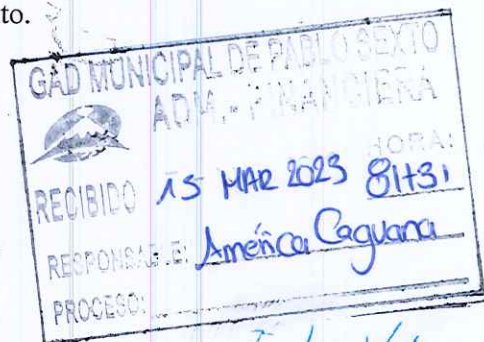 to.
GAD MUNICIPAL DE PABLO SEXTO
ADM.- FINANCIERA
HORA:
RECIBIDO 15 MAR 2023 8H31
RESPONSABLE: América Caguana
PROCESO: